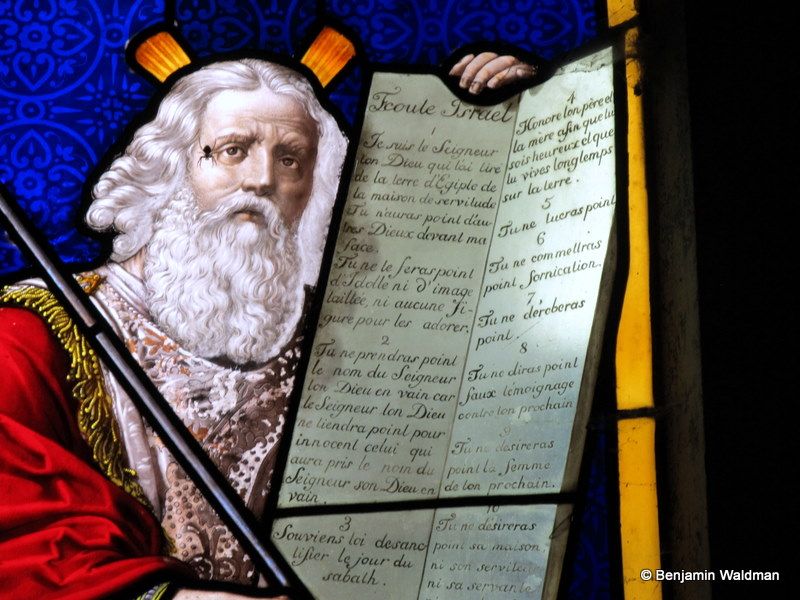 Ecoute Israel
1
Je suis le Seigneur
ton Dieu qui t'ai tiré
de la terre d'Egipte de
la maison de servitude
Tu n'auras point d'au
tres Dieux devant ma
face.
Tu ne te feras point
d'Idolle ni d'image
taillée, ni aucune fi-
gure pour les adorer.
2
Tu ne prendras point
le nom du Seigneur
ton Dieu en vain car
le Seigneur ton Dieu
ne tiendra point pour
innocent celui qui
aura pris le nom du
Seigneur son Dieu en
vain
3
Souviens toi de sanc
tifier le jour du
sabath.
4
Honore ton père et
ta mère afin que tu
sois heureux et que
tu vives longtemps
sur la terre.
5
Tu ne tueras point
6
Tu ne commettras
point fornication.
7
Tu ne déroberas
point.
8
Tu ne diras point
faux témoignage
contre ton prochain
9
Tu ne désireras
point la femme
de ton prochain.
10
Tu ne désireras
point sa maison,
ni son serviteur
ni sa servante
© Benjamin Waldman